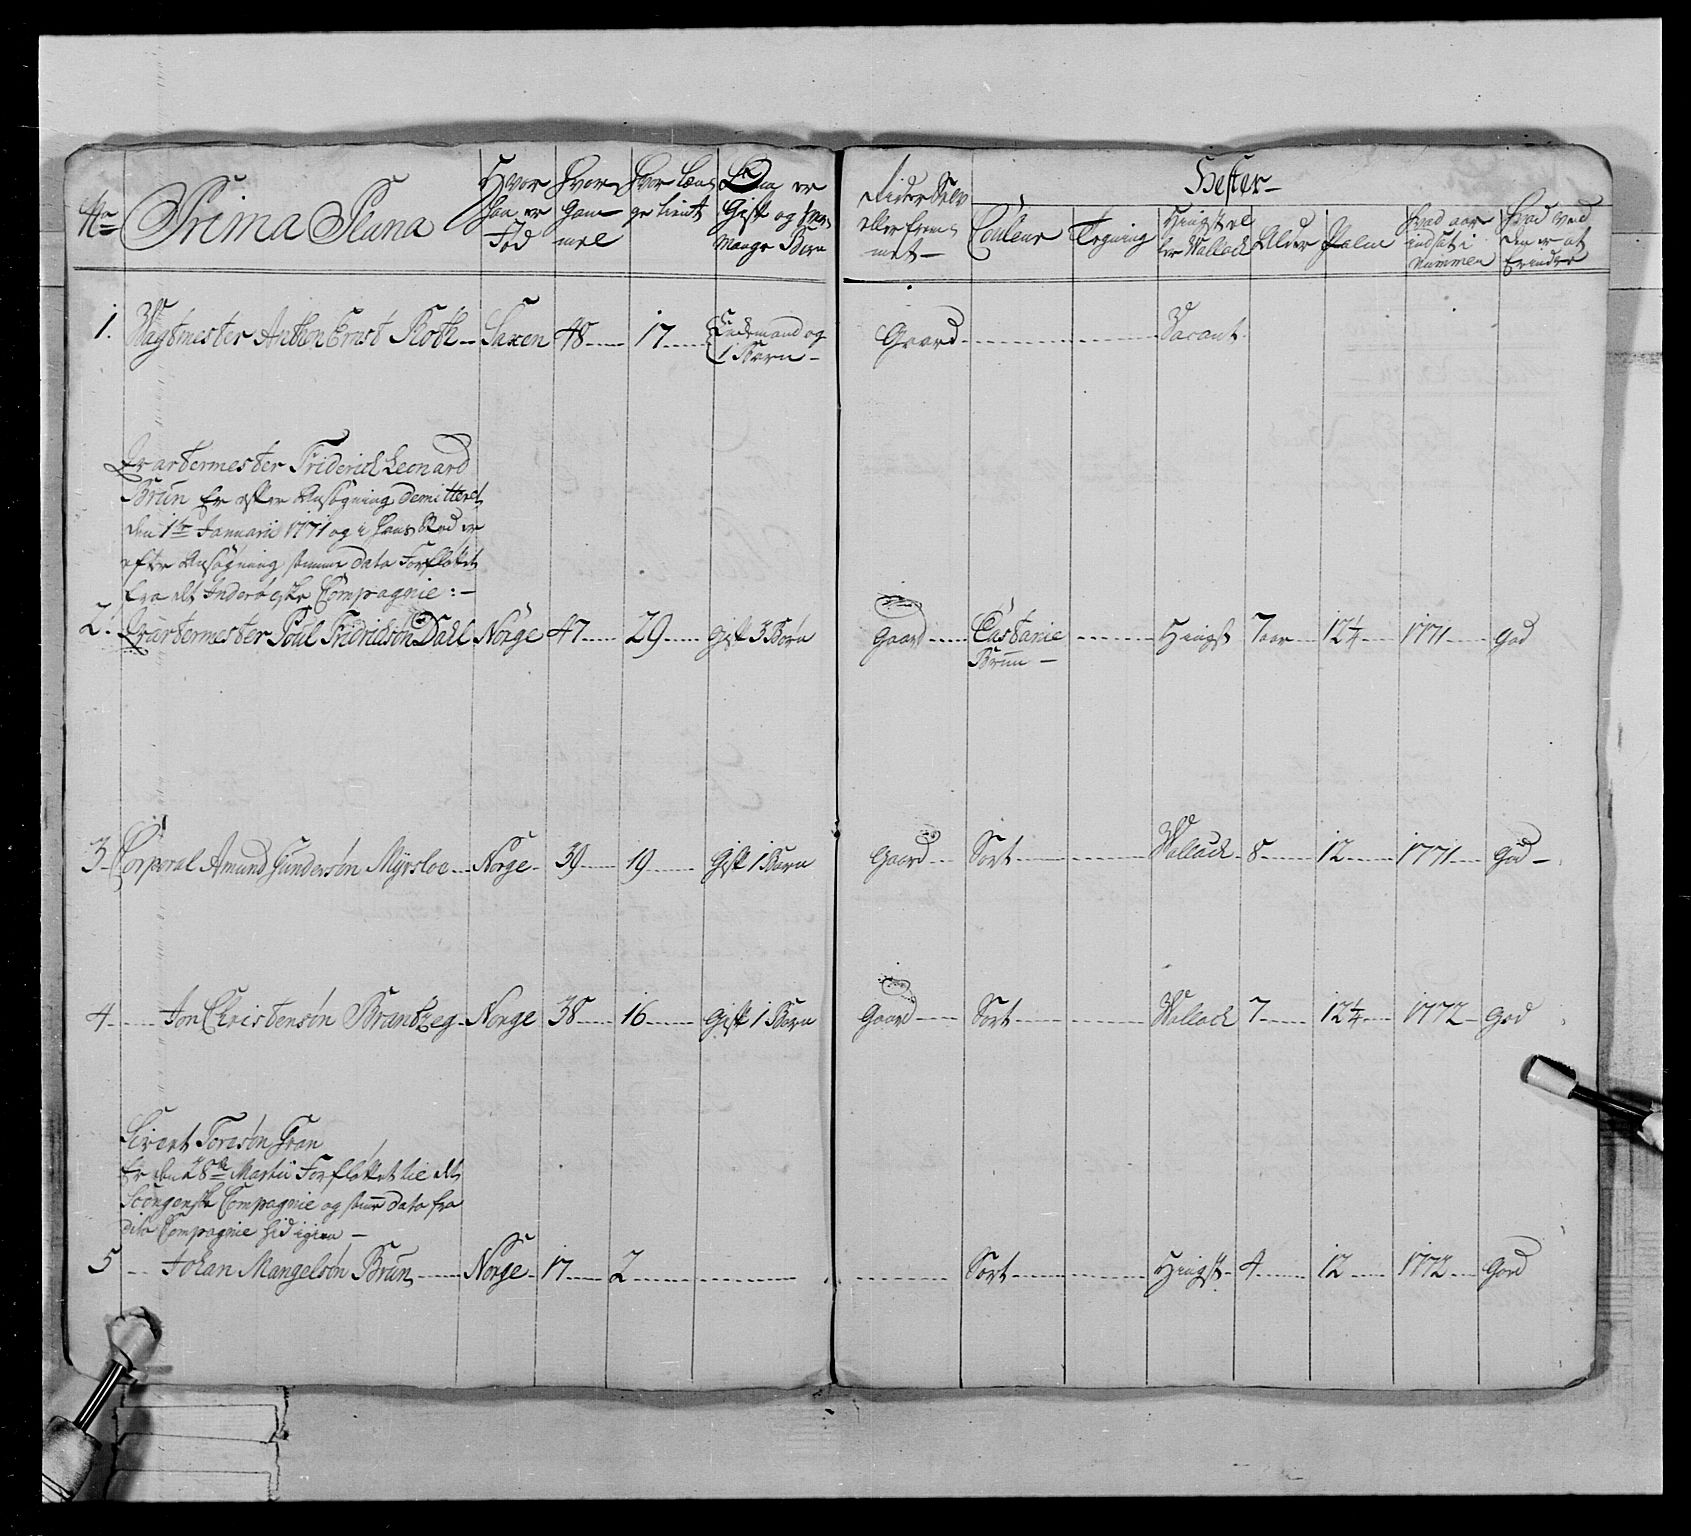 No Prima Plana
Hvor han er Fød
Hvor Gammel
Hvor længe tient
Om er Gift og hvor mange Børn
Rider Selv eller fremmet
Hester
Couleur
Tegning
Hingst eller Wallack
Alder
Palme
Hvad aar indsat i Nummen
Hvad ved den er at Erindre
1. Wagtmester Anthon Ernst Roth Saxen 48 17 Enkemand og 1 Barn Gaard Vacant
Qvartermester Friderich Leonard
Brun Er efter Ansøgning demitteret
den 1te Januarii 1771 og i hans Sted er
efter Ansøgning samme dato Forfløttet
fra det Inderøeske Compagnie:
2. Qvartermester Poul Fridricksøn Dahl Norge 47 29 Gift 3 Børn Gaard Castanie Hingst 7 aar 12¼ 1771 God
Brun
3 Corporal Amund Gundersøn Myrsloe Norge 39 19 Gift 1 Barn Gaard Sort Wallack 8 12 1771 God
4 Jon Christensøn Brantzeg Norge 38 16 Gift 1 Barn Gaard Sort Wallack 7 12¼ 1772 God
Sivert Toresøn Gran
Er den 28de Martii Forfløttet til det
Scongenske Compagnie og samme dato fra
dito Compagnie hid igien
5 Johan Mangelsøn Brun Norge 17 2 Sort Hingst 4 12 1772 God